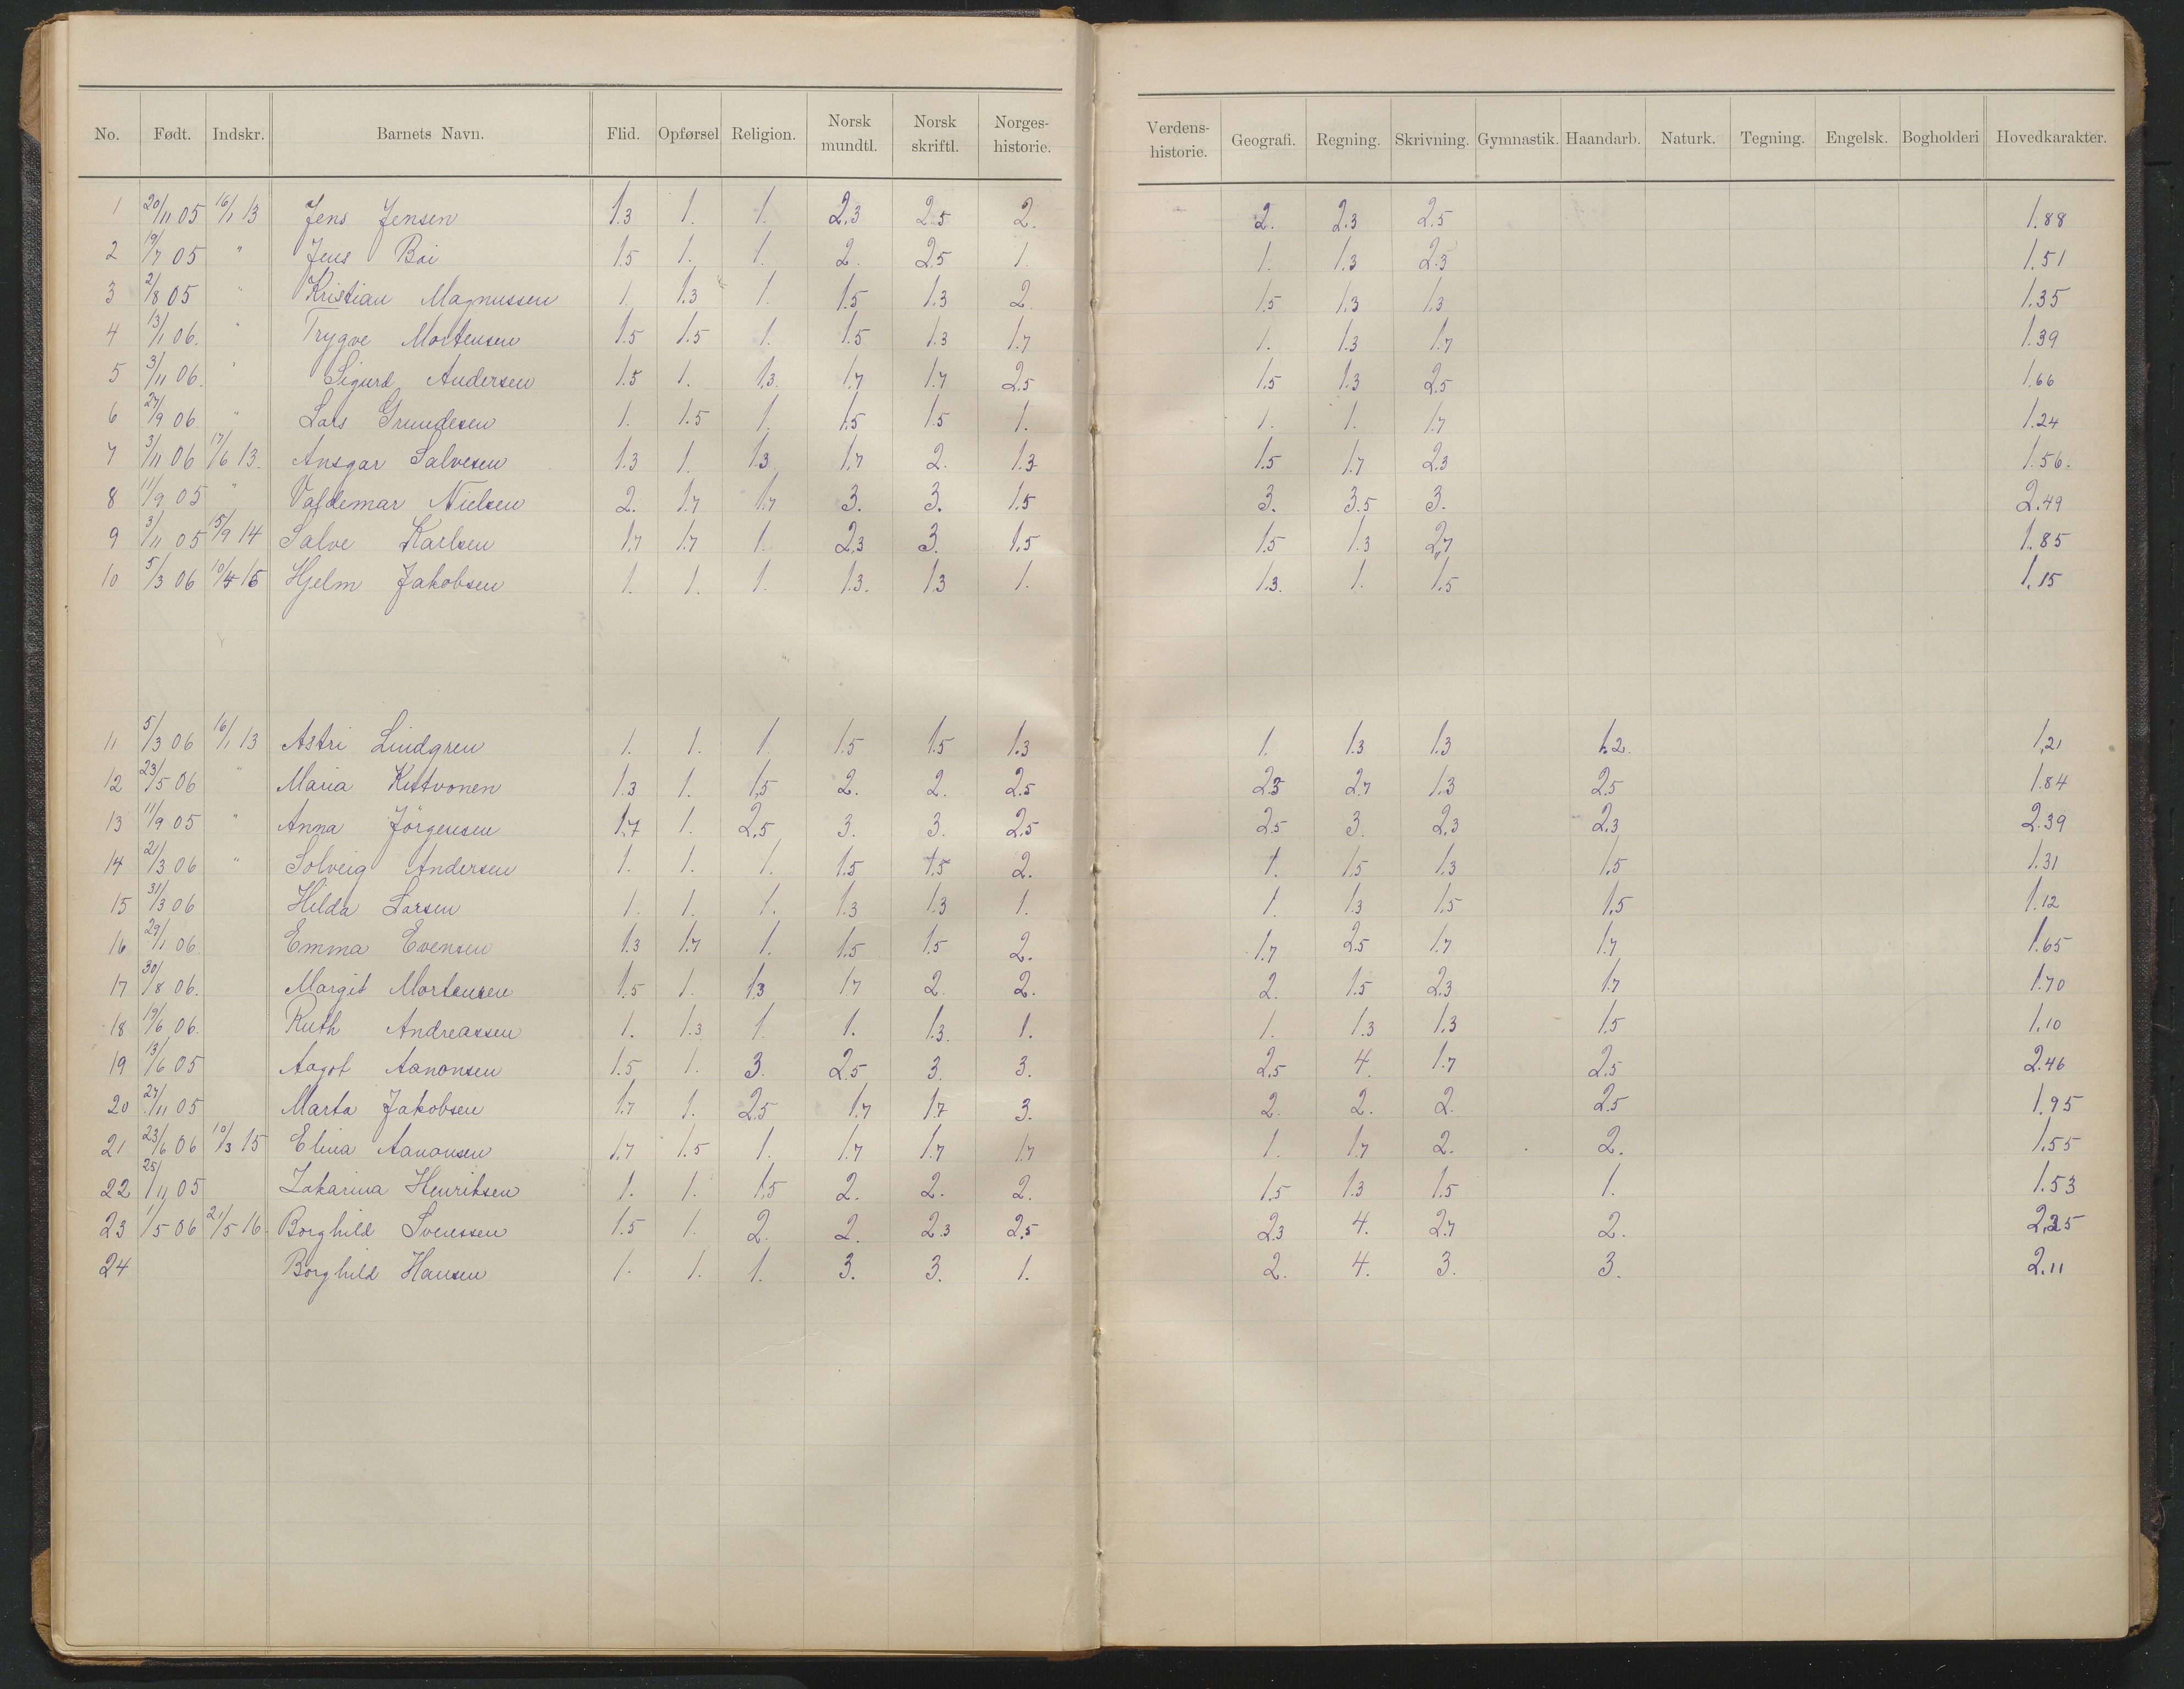 No. Født. Indskr. Barnets Navn. Flid. Opførsel Religion. Norsk mundtl. Norsk skriftl. Norges-historie. Verdens-historie. Geografi. Regning. Skrivning. Gymnastik. Haandarb. Naturk. Tegning. Engelsk. Bogholderi Hovedkarakter.
1 20/11 05 16/1 13 Jens Jensen 1.3 1. 1. 2.3 2.5 2. 2. 2.3 2.5 1.88
2 19/7 05 " Jens Boi 1.5 1. 1. 2. 2.5 1. 1. 1.3 2.3 1.51
3 2/8 05 " Kristian Magnussen 1. 1.3 1. 1.5 1.3 2. 1.5 1.3 1.3 1.35
4 13/1 06. " Trygve Mortensen 1.5 1.5 1. 1.5 1.3 1.7 1. 1.3 1.7 1.39
5 3/11 06. " Sigurd Andersen 1.5 1. 1.3. 1.7 1.7 2.5 1.5 1.3 2.5 1.66
6 27/9 06 " Lars Grundesen 1. 1.5 1. 1.5 1.5 1. 1. 1. 1.7 1.24
7 3/11 06 17/6 13. Ansgar Salvesen 1.3 1. 1.3 1.7 2. 1.3 1.5 1.7 2.3 1.56.
8 11/9 05 " Valdemar Nielsen 2. 1.7 1.7 3. 3. 1.5 3. 3.5 3. 2.49
9 3/11 05 15/9 14 Salve Karlsen 1.7 1.7 1. 2.3 3. 1.5 1.5 1.3 2.7 1.85
10 5/3 06 Hjelm Jakobsen 1. 1. 1. 1.3. 1.3 1. 1.3. 1. 1.5 1.15
11 5/3 06 16/1 13 Astri Lindgren 1. 1. 1. 1.5 1.5 1.3 1. 1.3 1.3 1.2. 1.21
12 23/5 06 " Maria Kutvonen 1.3 1. 1.5 2. 2. 2.5 2.3 2.7 1.3 2.5 1.84
13 11/9 05 " Anna Jörgensen 1.7 1. 2.5 3. 3. 2.5 2.5 3. 2.3 2.3 2.39
14 2/3 06 " Solveig Andersen 1. 1. 1. 1.5 1.5 2. 1. 1.5 1.3 1.5 1.31
15 31/3 06 Hilda Larsen 1. 1. 1. 1.3 1.3 1. 1. 1.3 1.5 1.5 1.12
16 29/1 06. Emma Evensen 1.3 1.7 1. 1.5 1.5 2. 1.7 2.5 1.7 1.7 1.65
17 30/8 06. Margit Mortensen 1.5 1. 1.3 1.7 2. 2. 2. 1.5 2.3 1.7 1.70
18 19/6 06. Ruth Andreassen 1. 1.3 1. 1. 1.3. 1. 1. 1.3 1.3 1.5 1.10
19 13/6 05 Aagot Aanonsen 1.5 1. 3. 2.5 3. 3. 2.5 4. 1.7 2.5 2.46
20 27/11 05 Marta Jakobsen 1.7 1. 2.5 1.7 1.7 3. 2. 2. 2. 2.5 1.95
21 23/6 06 10/3 15 Elina Aanonsen 1.7 1.5 1. 1.7 1.7 1.7 1. 1.7 2. 2. 1.55
22 25/11 05 Zakarina Henriksen 1. 1. 1.5 2. 2. 2. 1.5 1.3 1.5 1. 1.53
23 1/5 06 21/5 16 Borghild Svenssen 1.5 1. 2. 2. 2.3 2.5 2.3 4. 2.7 2. 2.25
24 Borghild Hansen 1. 1. 1. 3. 3. 1. 2. 4. 3. 3. 2.11